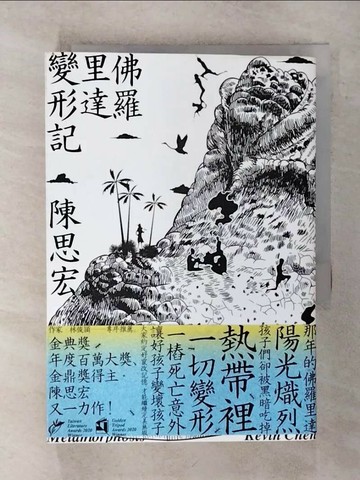 佛羅
里達
變形記
陳思宏
那年的佛羅里達
陽光熾烈
孩子們卻被黑暗吃掉
熱帶裡
一切變形
一樁死亡意外
讓好孩子變壞孩子
金典獎
年度百萬大獎
金鼎獎得主
陳思宏
又一力作！
Taiwan
Literature
Awards 2020
Golden
Tripod
Awards 2020
Metamorphosis
Kevin Chen